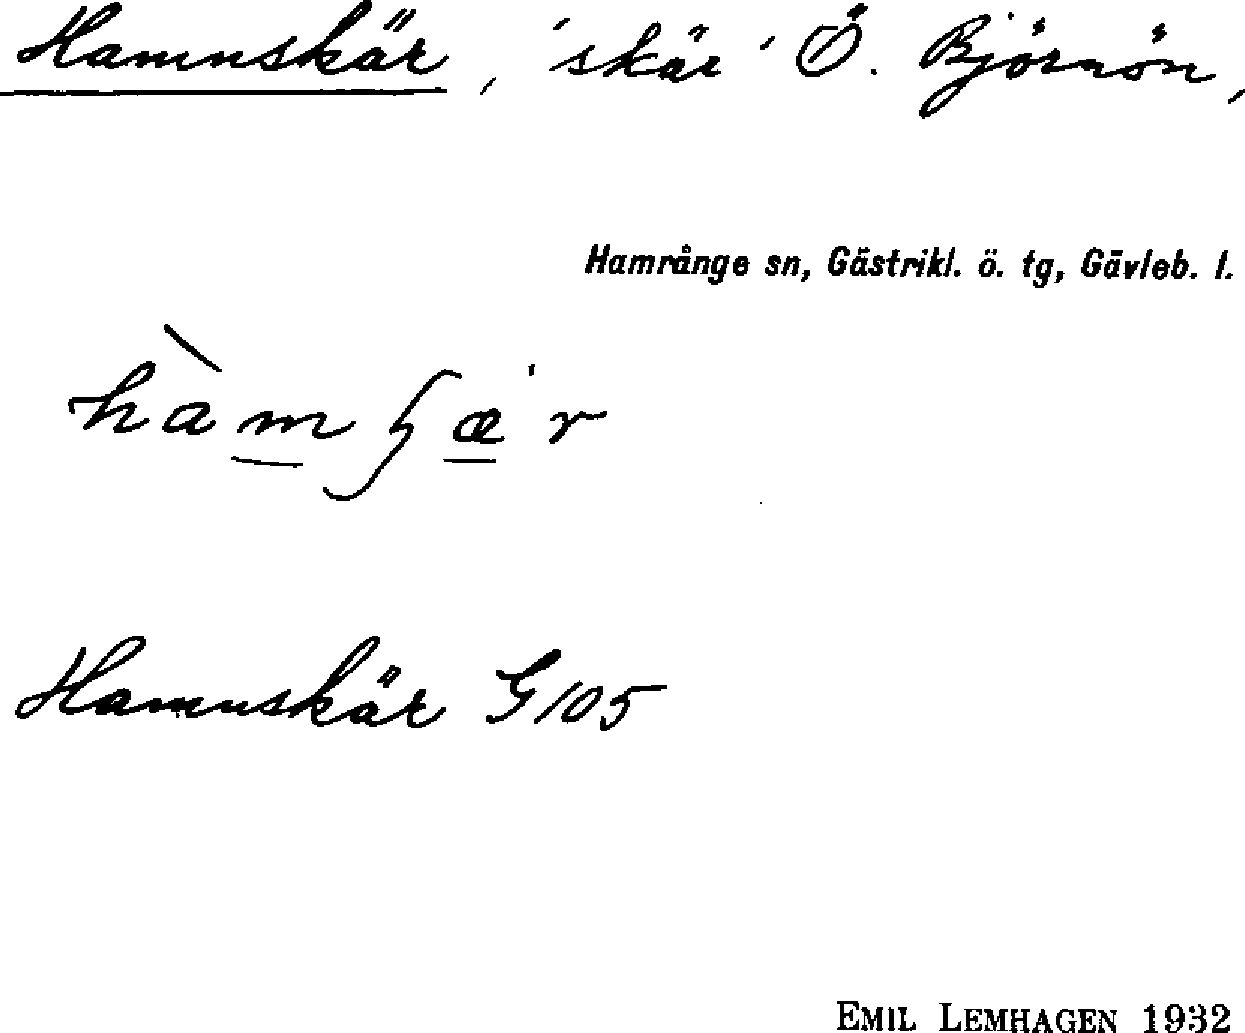 Hamnskär, 'skär' Ö. Björnön,
Hamrånge sn, Gästrikl. ö. tg, Gävleb. l.
Hamnskär G105
EMIL LEMHAGEN 1932